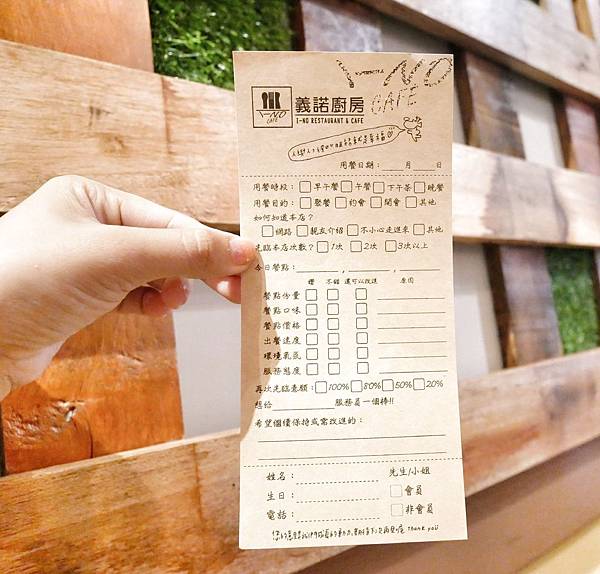 I-NO
CAFE
義諾廚房
I-NO RESTAURANT & CAFE
I-NO
CAFE
用餐日期：____月____日
用餐時段：□早午餐□午餐□下午茶□晚餐
用餐目的：□聚餐□約會□開會□其他
如何知道本店？
□網路□親友介紹□不小心走進來□其他
光臨本店次數？□1次□2次□3次以上
今日餐點：________，________，________
讚 不錯 還可以改進 原因
餐點份量□□□________
餐點口味□□□________
餐點價格□□□________
出餐速度□□□________
環境氣氛□□□________
服務態度□□□________
再次光臨意願：□100%□80%□50%□20%
想給________服務員一個棒!!
希望個優保持或需改進的：
姓名：________ 先生/小姐
生日：________ □會員
電話：________ □非會員
Thank you